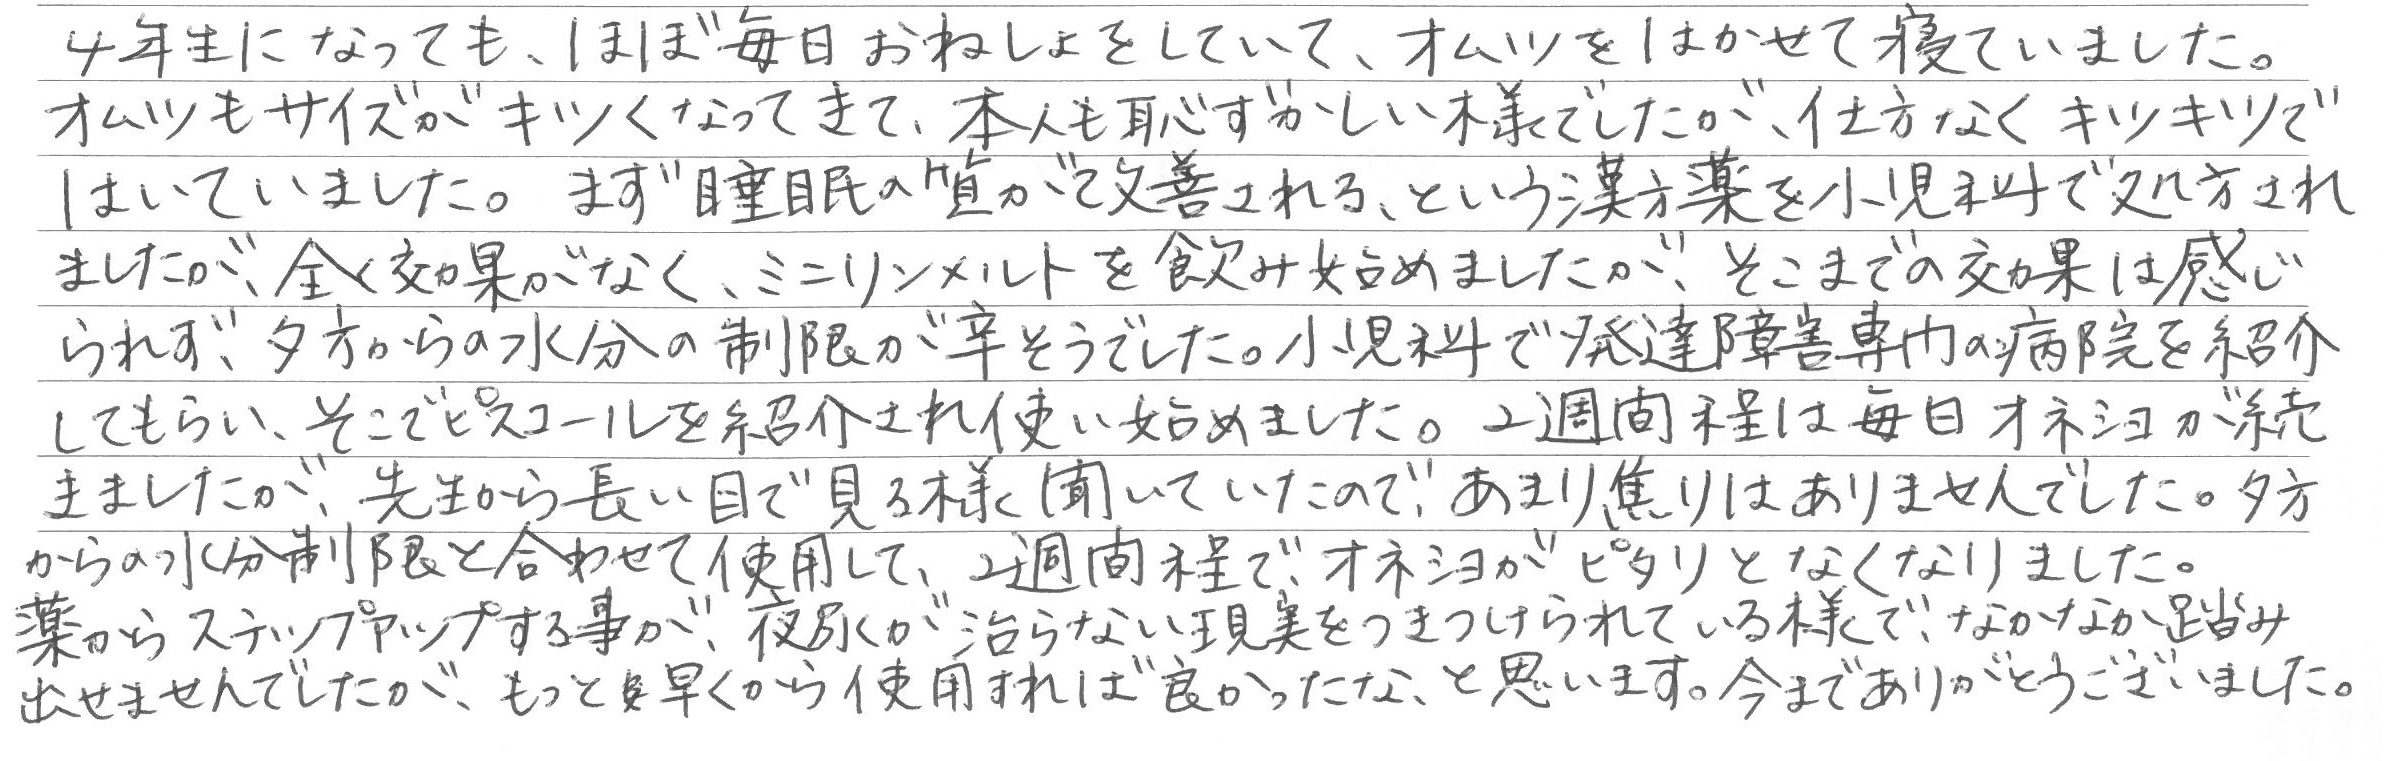 4年生になっても、ほぼ毎日おねしょをしていて、オムツをはかせて寝ていました。
オムツもサイズがキツくなってきて、本人も恥ずかしい様でしたが、仕方なくキツキツで
はいていました。まず睡眠の質が改善される、という漢方薬を小児科で処方され
ましたが、全く効果がなく、ミニリンメルトを飲み始めましたが、そこまでの効果は感じ
られず、夕方からの水分の制限が辛そうでした。小児科で発達障害専門の病院を紹介
してもらい、そこでピスコールを紹介され使い始めました。2週間程は毎日オネショが続
きましたが、先生から長い目で見る様に聞いていたので、あまり焦りはありませんでした。夕方
からの水分制限と合わせて使用して、2週間程で、オネショがピタリとなくなりました。
薬からステップアップする事が、夜尿が治らない現実をつきつけられている様で、なかなか踏み
出せませんでしたが、もっと早くから使用すれば良かったな、と思います。今までありがとうございました。